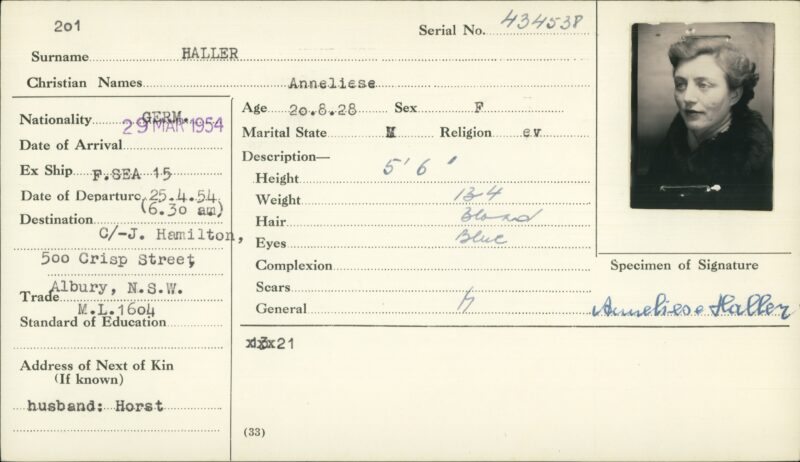 201
Serial No. 434538
Surname HALLER
Christian Names Anneliese
Nationality GERM.
29 MAR 1954
Date of Arrival
Ex Ship F.SEA 15
Date of Departure 25.4.54
(6.30 am)
Destination
C/-J. Hamilton,
500 Crisp Street,
Albury, N.S.W.
Trade
M.L.1604
Standard of Education
Address of Next of Kin
(If known)
husband: Horst
Age 20.8.28 Sex F
Marital State M Religion ev
Description—
Height 5' 6"
Weight 134
Hair Blond
Eyes Blue
Complexion
Scars
General
21
(33)
Specimen of Signature
Anneliese Haller